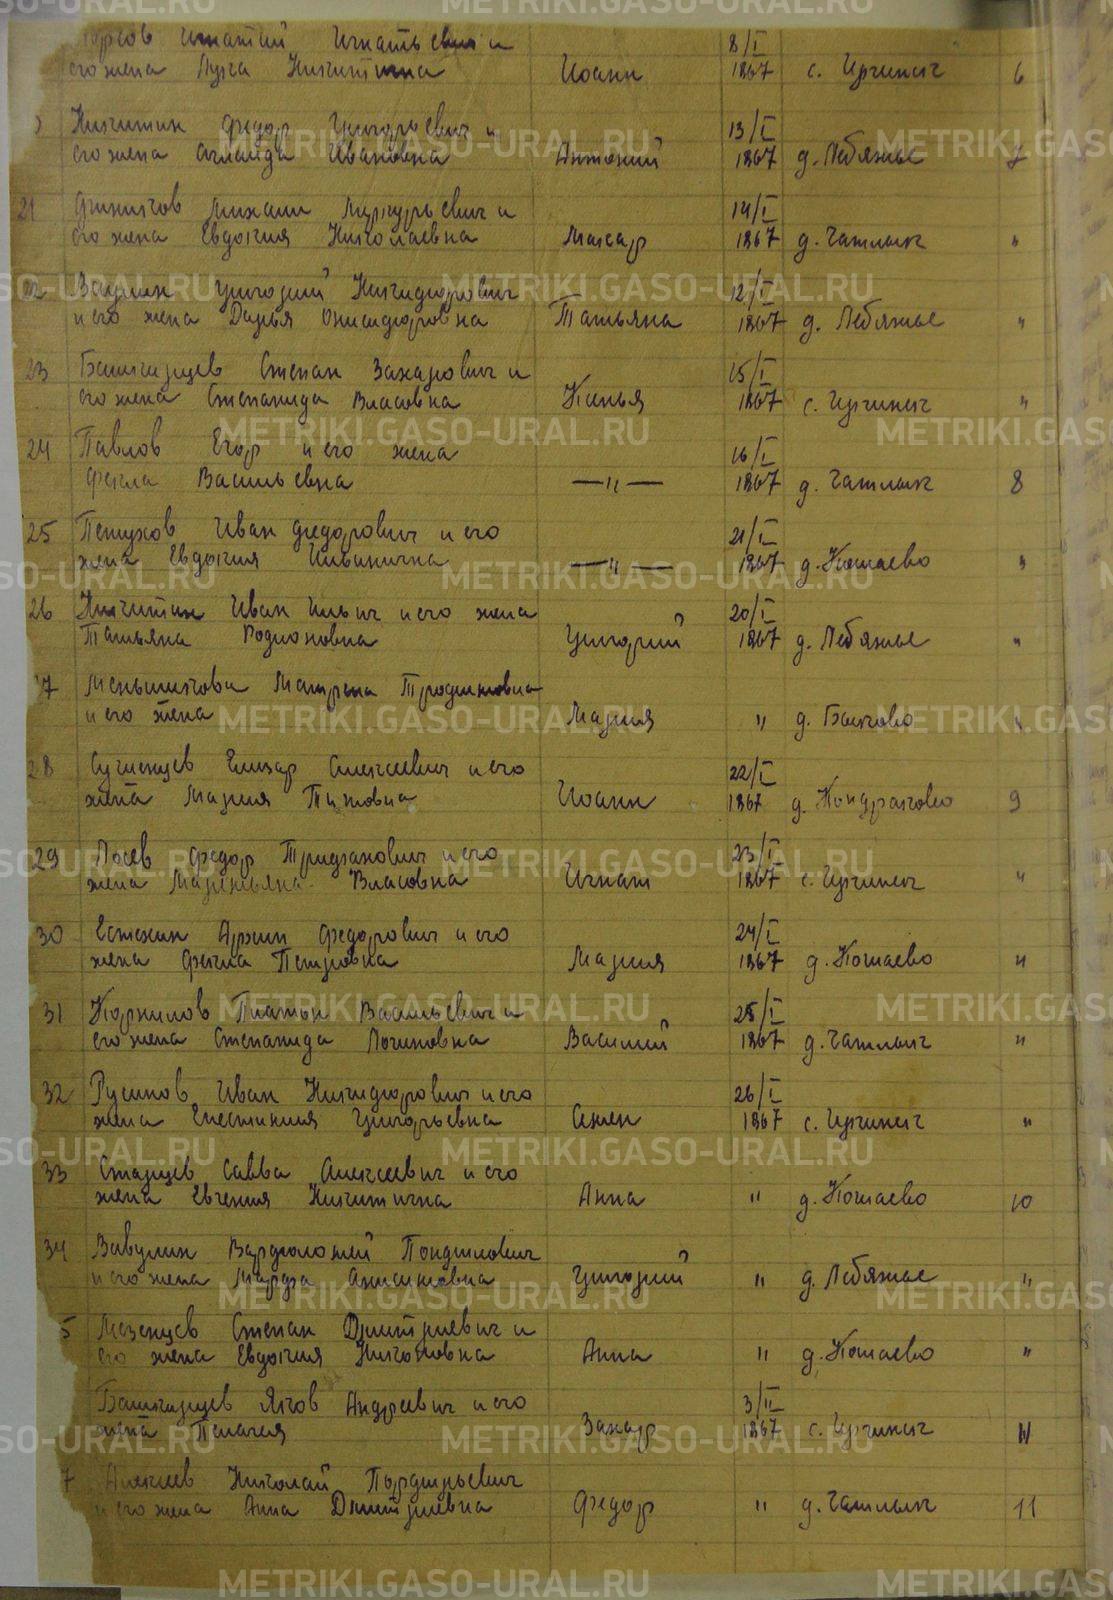 Игнатий Игнатьевич и 8/I
его жена Лукия Никитична Иоанн 1867 с. Иргинск 6
Никитин Федор Григорьевич и 13/I
его жена Аглаида Ивановна Антоний 1867 д. Лебяжье 7
21 Михаил Меркурьевич и 14/I
его жена Евдокия Николаевна Макар 1867 д. Чатлык "
22 Вавулин Григорий Никифорович 12/I
и его жена Дарья Онисифоровна Татьяна 1867 д. Лебяжье "
23 Башкирцев Степан Захарович и 15/I
его жена Степанида Власовна Ксенья 1867 с. Иргинск "
24 Павлов Егор и его жена 16/I
Фекла Васильевна —"— 1867 д. Чатлык 8
25 Петухов Иван Федорович и его 21/I
жена Евдокия Ивановна —"— 1867 д. Кошаево "
26 Никитин Иван Ильич и его жена 20/I
Татьяна Родионовна Григорий 1867 д. Лебяжье "
27 Меньшикова Матрена Трофимовна
и его жена Мария " д. Быково "
28 Елизар Алексеевич и его 22/I
жена Мария Титовна Иоанн 1867 д. Кондраково 9
29 Лосев Федор Трифанович и его 23/I
жена Маремьяна Власовна Игнат 1867 с. Иргинск "
30 Естехин Аркип Федорович и его 24/I
жена Фекла Петровна Мария 1867 д. Кошаево "
31 Корнилов Платон Васильевич и 25/I
его жена Степанида Логиновна Василий 1867 д. Чатлык "
32 Русинов Иван Никифорович и его 26/I
жена Епестимия Григорьевна Семен 1867 с. Иргинск "
33 Старцев Савва Алексеевич и его
жена Евгения Никитична Анна " д. Кошаево 10
34 Вавулин Варфоломей Панфилович
и его жена Марфа Григорий " д. Лебяжье "
5 Мезенцев Степан Дмитриевич и
его жена Евдокия Анна " д. Кошаево "
Башкирцев Яков Андреевич и его 3/II
жена Пелагея Захар 1867 с. Иргинск 11
7 Алексеев Николай Порфирьевич
и его жена Анна Дмитриевна Федор " д. Чатлык 11
METRIKI.GASO-URAL.RU